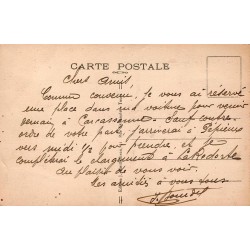 CARTE POSTALE
Chers Amis,
Comme convenu, je vous ai réservé
une place dans ma voiture pour venir
demain à Carcassonne. Sauf contre-
ordre de votre part, j'arriverai à Pépieux
vers midi 1/2 pour prendre, et je
compléterai le chargement à Laredorte
Au plaisir de vous voir.
Les amitiés à vous tous